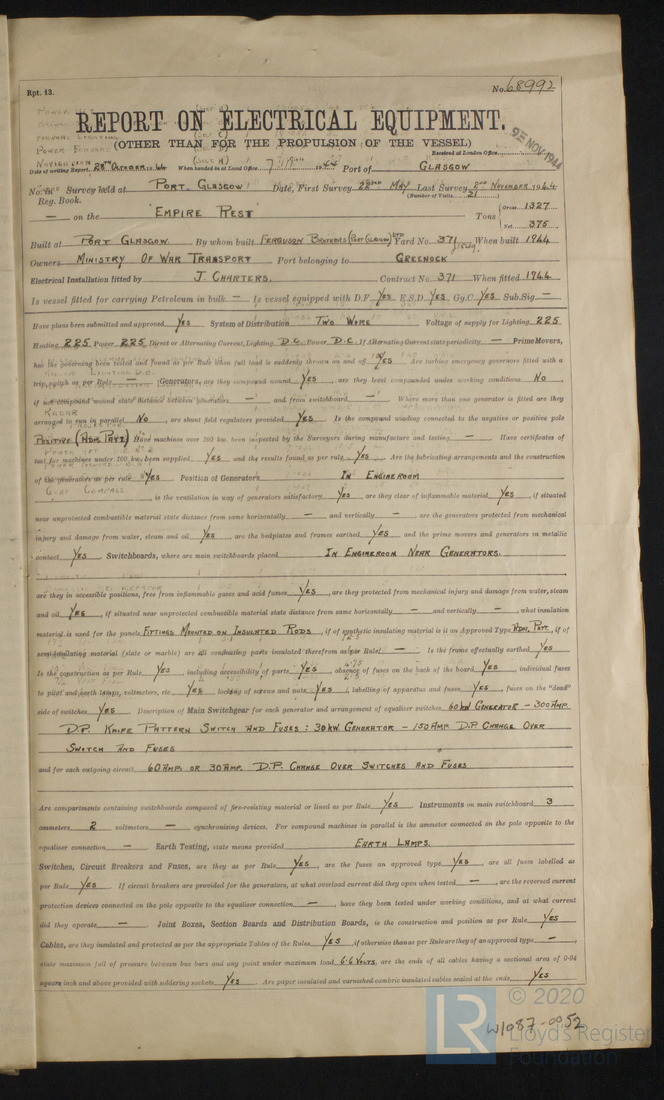 Rpt. 13.
No. 68992
REPORT ON ELECTRICAL EQUIPMENT.
(OTHER THAN FOR THE PROPULSION OF THE VESSEL)
Received at London Office
NOV 1944
Date of writing Report 28TH OCTOBER 1944 When handed in at Local Office 19 44 Port of GLASGOW
No. in Reg. Book. Survey held at PORT GLASGOW Date, First Survey 22ND MAY Last Survey 2ND NOVEMBER 1944
(Number of Visits 21)
— on the "EMPIRE REST" Tons Gross 1327 Net 375
Built at PORT GLASGOW By whom built FERGUSON BROTHERS (PORT GLASGOW) LTD Yard No. 371 When built 1944
Owners MINISTRY OF WAR TRANSPORT Port belonging to GREENOCK
Electrical Installation fitted by J. CHARTERS. Contract No. 371 When fitted 1944
Is vessel fitted for carrying Petroleum in bulk — Is vessel equipped with D.F. YES E.S.D. YES Gy.C. YES Sub.Sig. —
Have plans been submitted and approved YES System of Distribution TWO WIRE Voltage of supply for Lighting 225
Heating 225 Power 225 Direct or Alternating Current, Lighting D.C. Power D.C. If Alternating Current state periodicity — Prime Movers,
has the governing been tested and found as per Rule when full load is suddenly thrown on and off YES Are turbine emergency governors fitted with a
trip switch as per Rule — Generators, are they compound wound YES, are they level compounded under working conditions NO,
if not compound wound state distance between generators — and from switchboard — Where more than one generator is fitted are they
arranged to run in parallel NO, are shunt field regulators provided YES Is the compound winding connected to the negative or positive pole
POSITIVE Have machines over 100 kw. been inspected by the Surveyors during manufacture and testing — Have certificates of
test for machines under 100 kw. been supplied YES and the results found as per rule YES Are the lubricating arrangements and the construction
of the generators as per rule YES Position of Generators IN ENGINEROOM
, is the ventilation in way of generators satisfactory YES are they clear of inflammable material YES, if situated
near unprotected combustible material state distance from same horizontally — and vertically —, are the generators protected from mechanical
injury and damage from water, steam and oil YES, are the bedplates and frames earthed YES and the prime movers and generators in metallic
contact YES Switchboards, where are main switchboards placed IN ENGINEROOM NEAR GENERATORS.
are they in accessible positions, free from inflammable gases and acid fumes YES, are they protected from mechanical injury and damage from water, steam
and oil YES, if situated near unprotected combustible material state distance from same horizontally — and vertically —, what insulation
material is used for the panels FITTINGS MOUNTED ON INSULATED RODS, if of synthetic insulating material is it an Approved Type, if of
semi-insulating material (slate or marble) are all conducting parts insulated therefrom as per Rule — Is the frame effectually earthed YES
Is the construction as per Rule YES, including accessibility of parts YES, absence of fuses on the back of the board YES, individual fuses
to pilot and earth lamps, voltmeters, etc. YES, locking of screws and nuts YES, labelling of apparatus and fuses YES, fuses on the "dead"
side of switches YES Description of Main Switchgear for each generator and arrangement of equaliser switches 60 KW GENERATOR – 300 AMP
D.P. KNIFE PATTERN SWITCH AND FUSES: 30 KW GENERATOR – 150 AMP D.P. CHANGE OVER
SWITCH AND FUSES
and for each outgoing circuit 60 AMP. OR 30 AMP. D.P. CHANGE OVER SWITCHES AND FUSES
Are compartments containing switchboards composed of fire-resisting material or lined as per Rule YES Instruments on main switchboard 3
ammeters 2 voltmeters — synchronising devices. For compound machines in parallel is the ammeter connected on the pole opposite to the
equaliser connection — Earth Testing, state means provided EARTH LAMPS.
Switches, Circuit Breakers and Fuses, are they as per Rule YES, are the fuses an approved type YES, are all fuses labelled as
per Rule YES If circuit breakers are provided for the generators, at what overload current did they open when tested —, are the reversed current
protection devices connected on the pole opposite to the equaliser connection —, have they been tested under working conditions, and at what current
did they operate — Joint Boxes, Section Boards and Distribution Boards, is the construction and position as per Rule YES
Cables, are they insulated and protected as per the appropriate Tables of the Rules YES, if otherwise than as per Rule are they of an approved type —,
state maximum fall of pressure between bus bars and any point under maximum load 6.6 VOLTS, are the ends of all cables having a sectional area of 0·04
square inch and above provided with soldering sockets YES Are paper insulated and varnished cambric insulated cables sealed at the ends YES
© 2020
Lloyd's Register
Foundation
W1087-0052